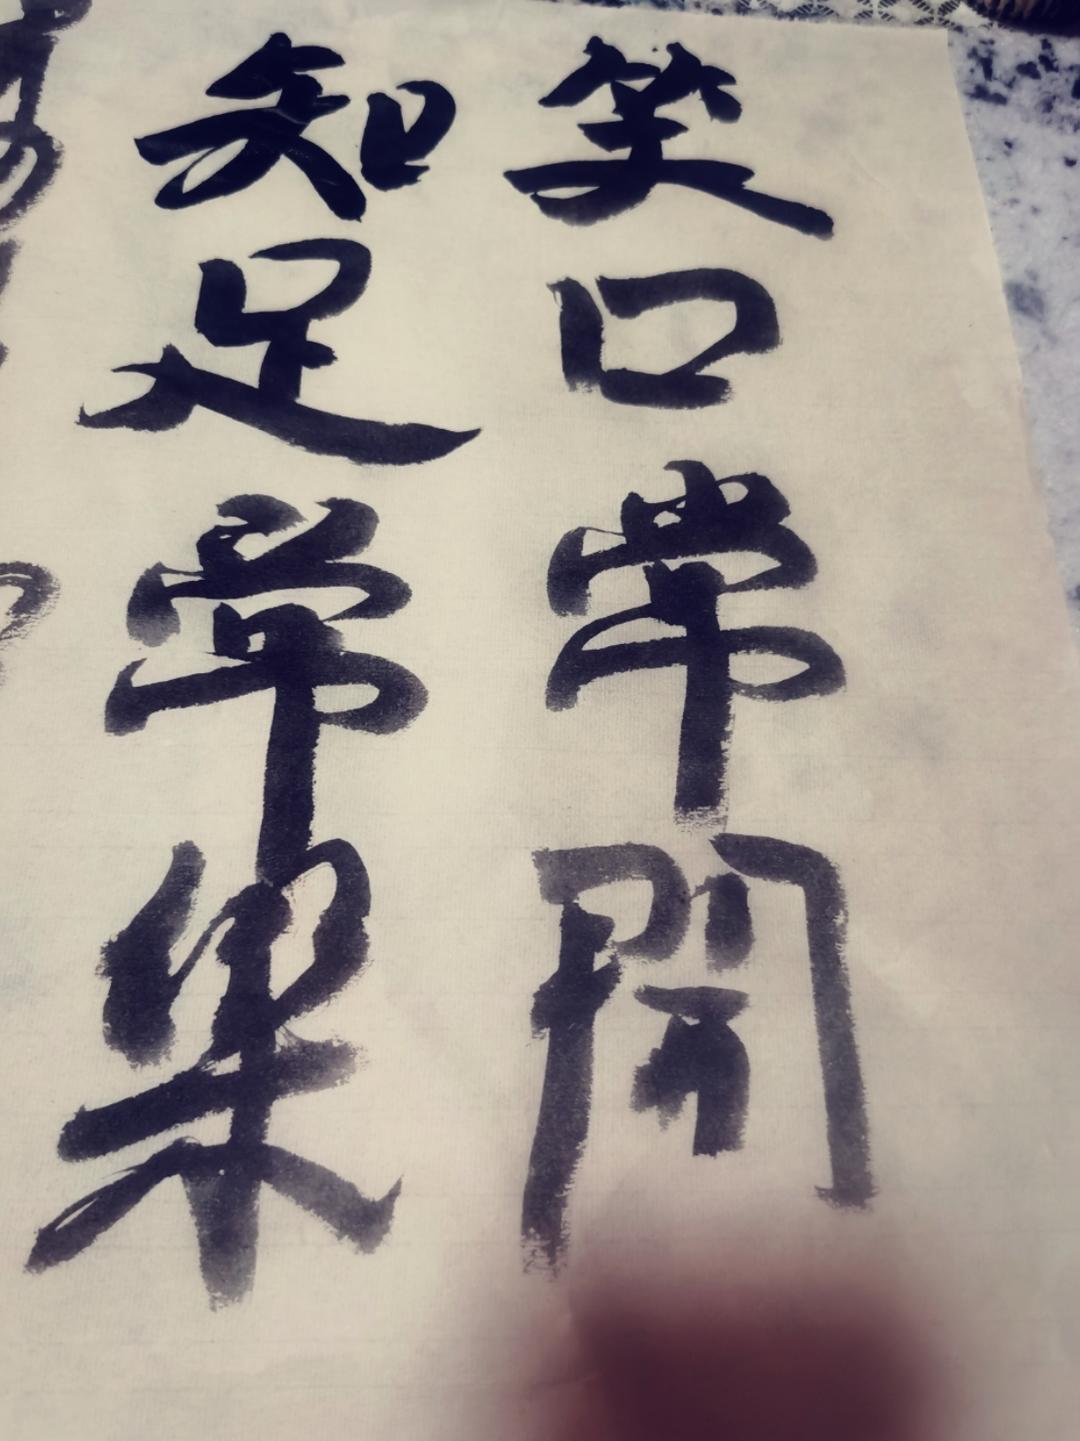 笑口常開
知足常樂